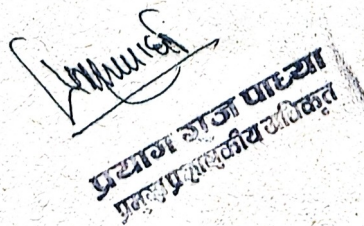 प्रयाग राज पाध्या
प्रमुख प्रशासकीय अधिकृत